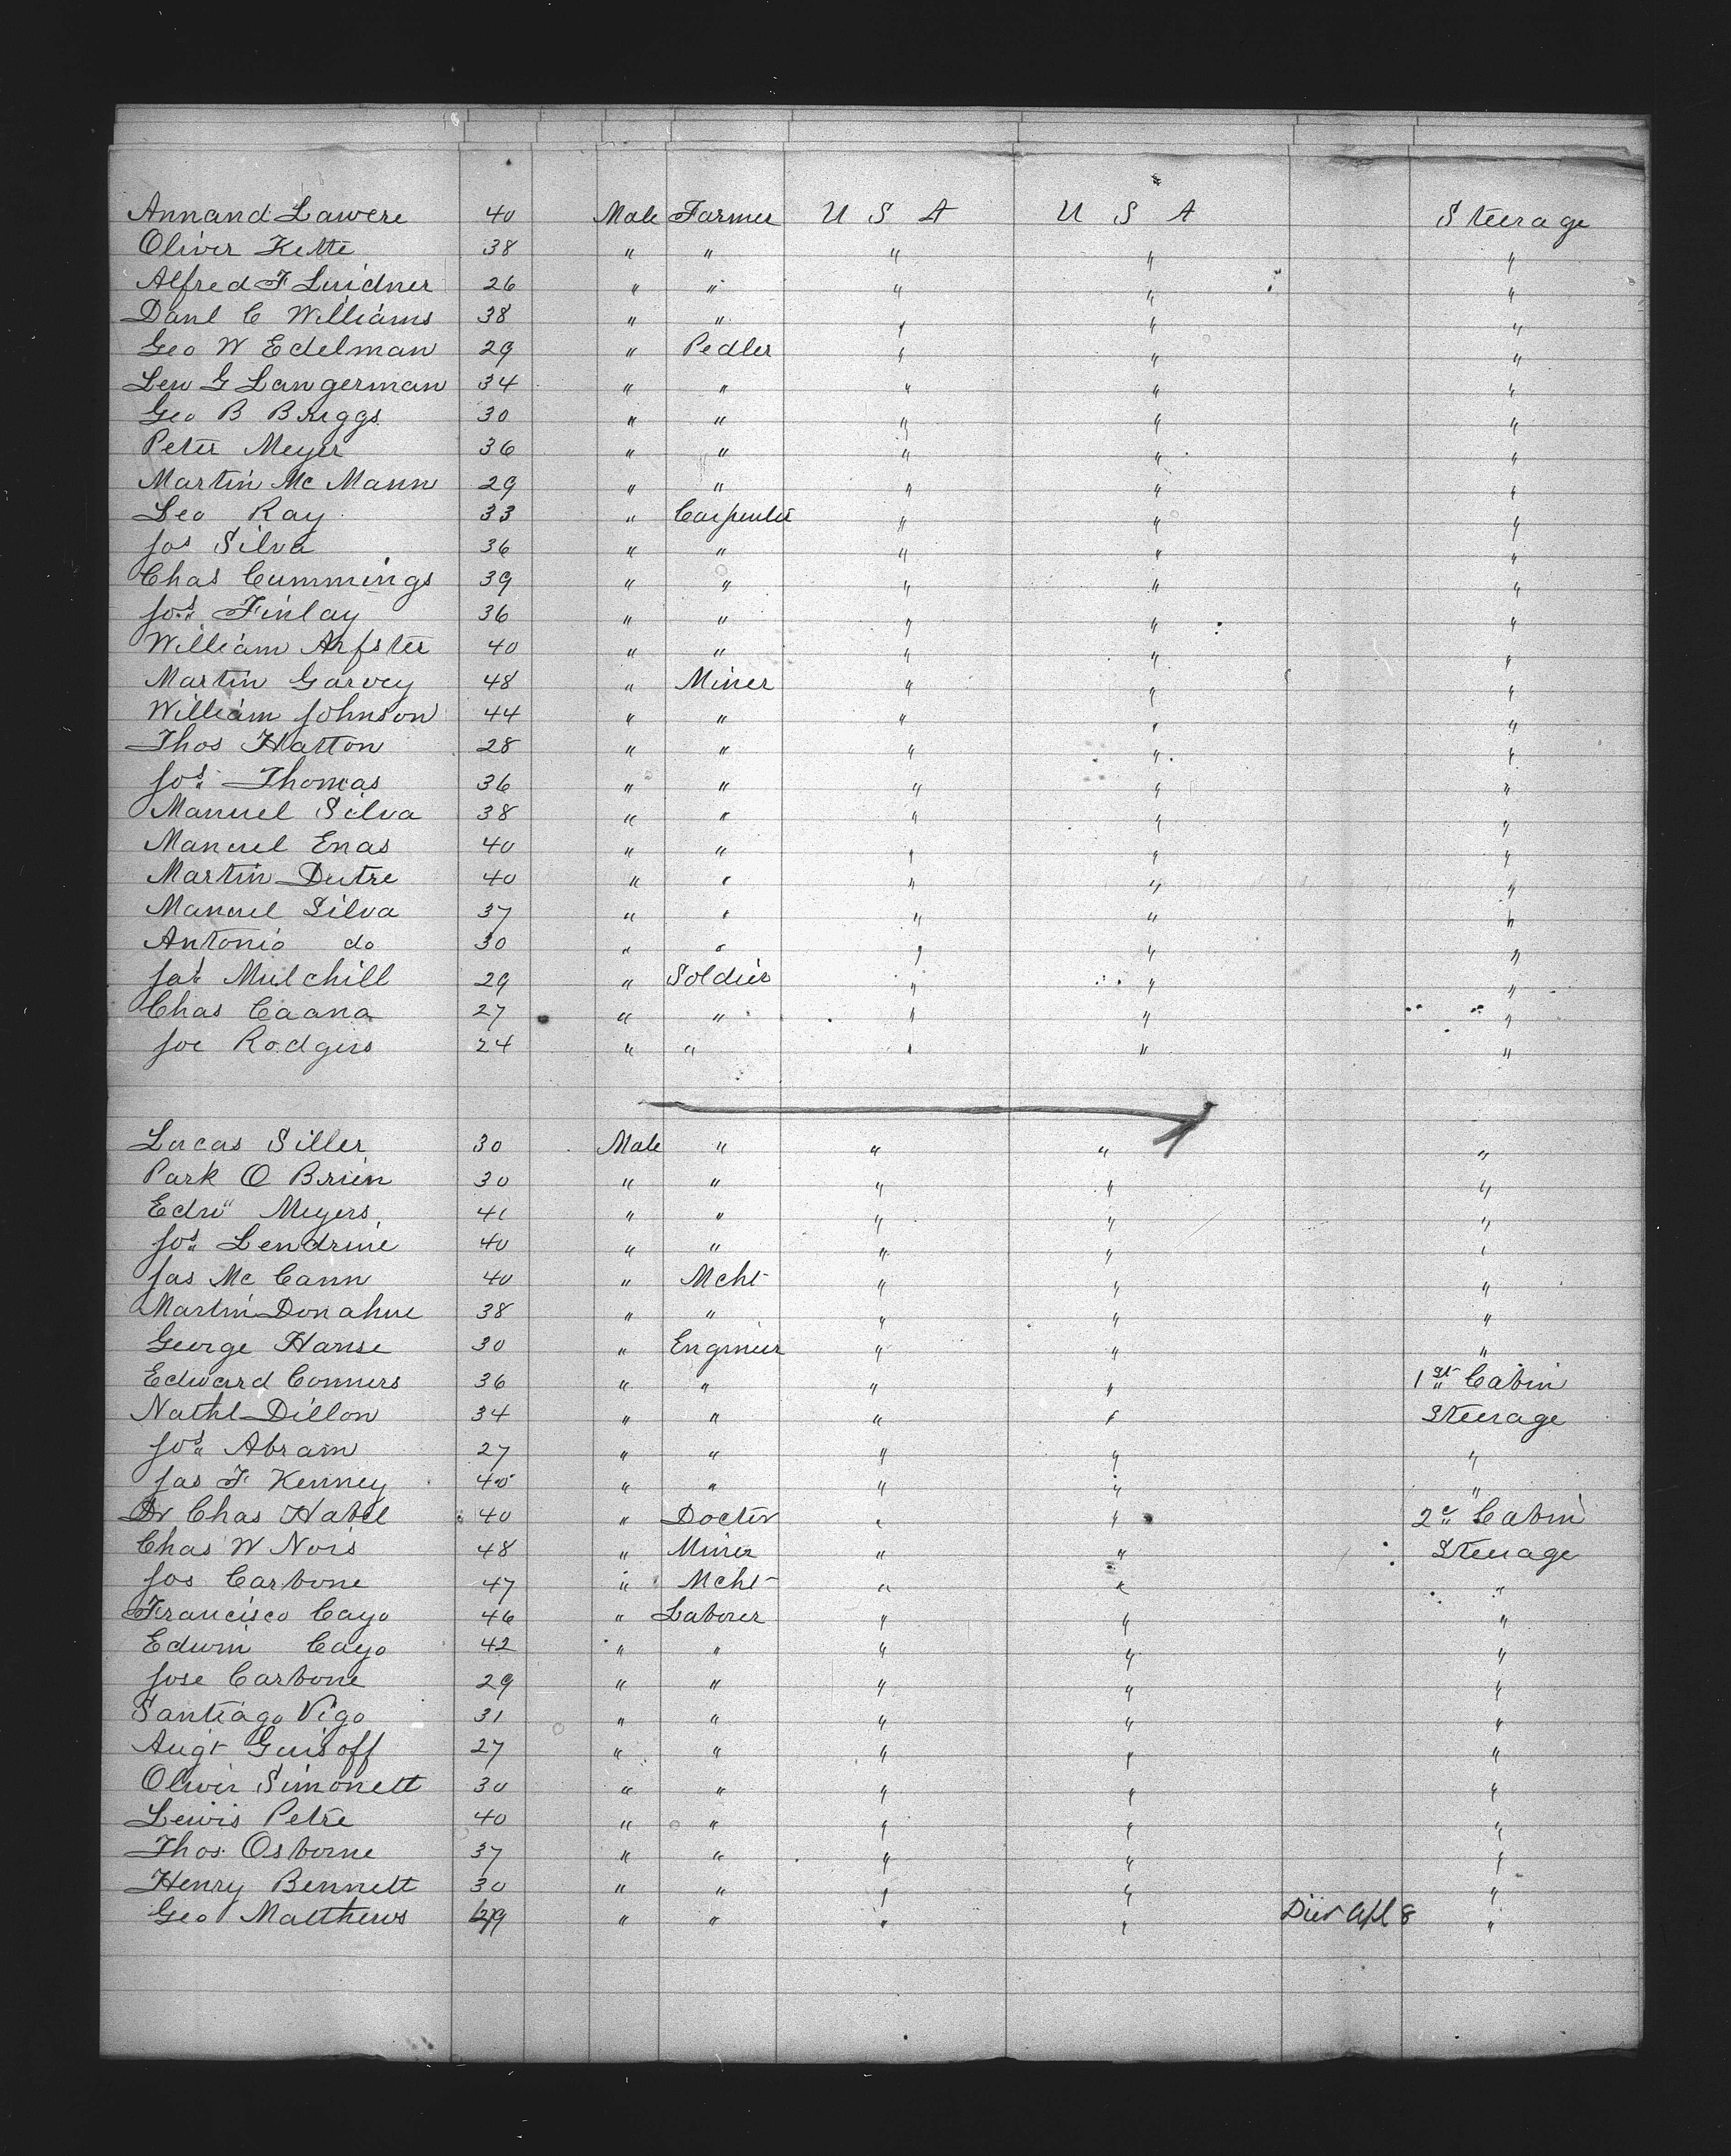 Annand Lawere 40 Male Farmer U S A U S A Steerage
Oliver Kette 38 " " " " "
Alfred F Lindner 26 " " " " "
Danl C Williams 38 " " " " "
Geo W Edelman 29 " Pedler " " "
Lew G Langerman 34 " " " " "
Geo B Briggs 30 " " " " "
Peter Meyer 36 " " " " "
Martin Mc Mann 29 " " " " "
Leo Ray 33 " Carpenter " " "
Jos Silva 36 " " " " "
Chas Cummings 39 " " " " "
Jos Finlay 36 " " " " "
William Arfster 40 " " " " "
Martin Garvey 48 " Miner " " "
William Johnson 44 " " " " "
Thos Hatton 28 " " " " "
Jos Thomas 36 " " " " "
Manuel Silva 38 " " " " "
Manuel Enas 40 " " " " "
Martin Dutre 40 " " " " "
Manuel Silva 37 " " " " "
Antonio do 30 " " " " "
Mulchill 29 " Soldier " " "
Chas Caana 27 " " " " "
Joe Rodgers 24 " " " " "
Lucas Siller 30 Male " " " "
Park O Brien 30 " " " " "
Edw Meyers 41 " " " " "
Jos Lendrine 40 " " " " "
Jas Mc Cann 40 " Mcht " " "
Martin Donahue 38 " " " " "
George Hanse 30 " Engineer " " "
Edward Conners 36 " " " " 1st Cabin
Nathl Dillon 34 " " " " Steerage
Jos Abram 27 " " " " "
Jas F Kenney 40 " " " " "
Dr Chas Hatel 40 " Doctor " " 2c Cabin
Chas W Nois 48 " Miner " " Steerage
Jos Carbone 47 " Mcht " " "
Francisco Cayo 46 " Laborer " " "
Edwin Cayo 42 " " " " "
Jose Carbone 29 " " " " "
Santiago Vigo 31 " " " " "
Augt Guisoff 27 " " " " "
Oliver Simonett 30 " " " " "
Lewis Petre 40 " " " " "
Thos Osborne 37 " " " " "
Henry Bennett 30 " " " " "
Geo Matthews 29 " " " " Died Apl 8 "